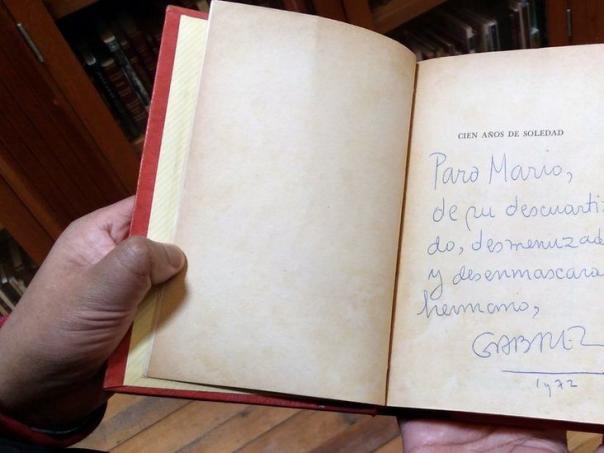 CIEN AÑOS DE SOLEDAD
Para Mario,
de su descuarti
do, desmenuzad
y desenmascara
hermano,
GABRIEL
1972